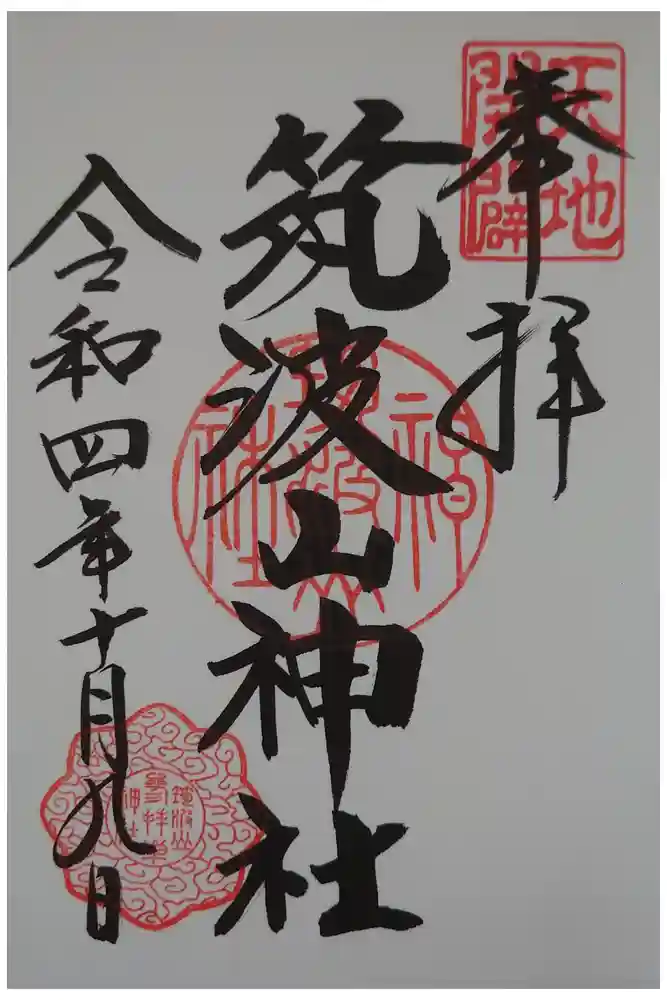 奉拝
天地
開闢
筑波山神社
筑波山
神社
令和四年十月九日
筑波山
参拝章
神社